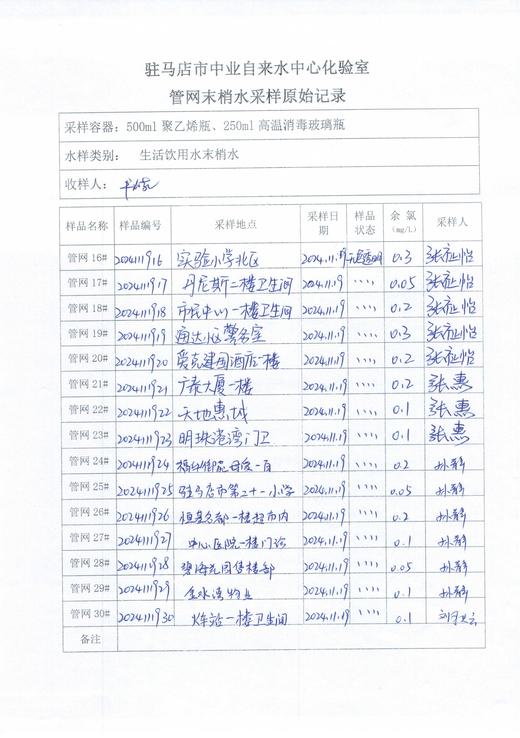 驻马店市中业自来水中心化验室
管网末梢水采样原始记录
采样容器：500ml 聚乙烯瓶、250ml 高温消毒玻璃瓶
水样类别： 生活饮用水末梢水
收样人：
样品名称 样品编号 采样地点 采样日期 样品状态 余氯(mg/L) 采样人
管网 16# 2024111916 实验小学北区 2024.11.19 无色透明 0.3 张征怡
管网 17# 2024111917 丹尼斯二楼卫生间 2024.11.19 〃〃 0.05 张征怡
管网 18# 2024111918 市民中心一楼卫生间 2024.11.19 〃〃 0.2 张征怡
管网 19# 2024111919 通达小区警务室 2024.11.19 〃〃 0.3 张征怡
管网 20# 2024111920 爱克建国酒店一楼 2024.11.19 〃〃 0.2 张征怡
管网 21# 2024111921 广泰大厦一楼 2024.11.19 〃〃 0.2 张惠
管网 22# 2024111922 天地惠城 2024.11.19 〃〃 0.1 张惠
管网 23# 2024111923 明珠港湾门卫 2024.11.19 〃〃 0.1 张惠
管网 24# 2024111924 2024.11.19 〃〃 0.2 孙静
管网 25# 2024111925 驻马店市第二十一小学 2024.11.19 〃〃 0.05 孙静
管网 26# 2024111926 恒基名都一楼超市内 2024.11.19 〃〃 0.2 孙静
管网 27# 2024111927 中心医院一楼门诊 2024.11.19 〃〃 0.1 孙静
管网 28# 2024111928 碧海花园售楼部 2024.11.19 〃〃 0.05 孙静
管网 29# 2024111929 金水湾物业 2024.11.19 〃〃 0.1 孙静
管网 30# 2024111930 火车站一楼卫生间 2024.11.19 〃〃 0.1
备注